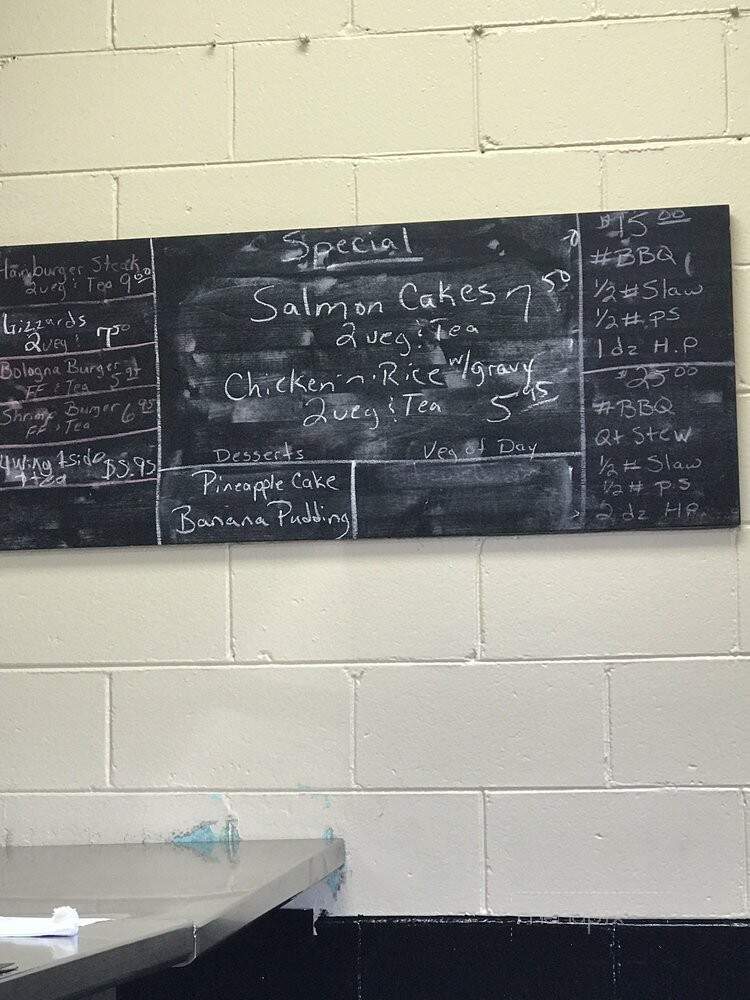 Hamburger Steak
2 veg & Tea 9.00
Gizzards
2 veg & 7.50
Bologna Burger
FF & Tea 5.95
Shrimp Burger 6.95
FF & Tea
4 wing 1 side
$5.95
Special
Salmon Cakes 7.50
2 veg & Tea
Chicken 'n' Rice w/gravy
2 veg & Tea 5.95
Desserts
Pineapple Cake
Banana Pudding
Veg of Day
$15.00
#BBQ
1/2 # Slaw
1/2 # PS
1 dz H.P
$25.00
#BBQ
Qt Stew
1/2 # Slaw
1/2 # PS
2 dz H.P.